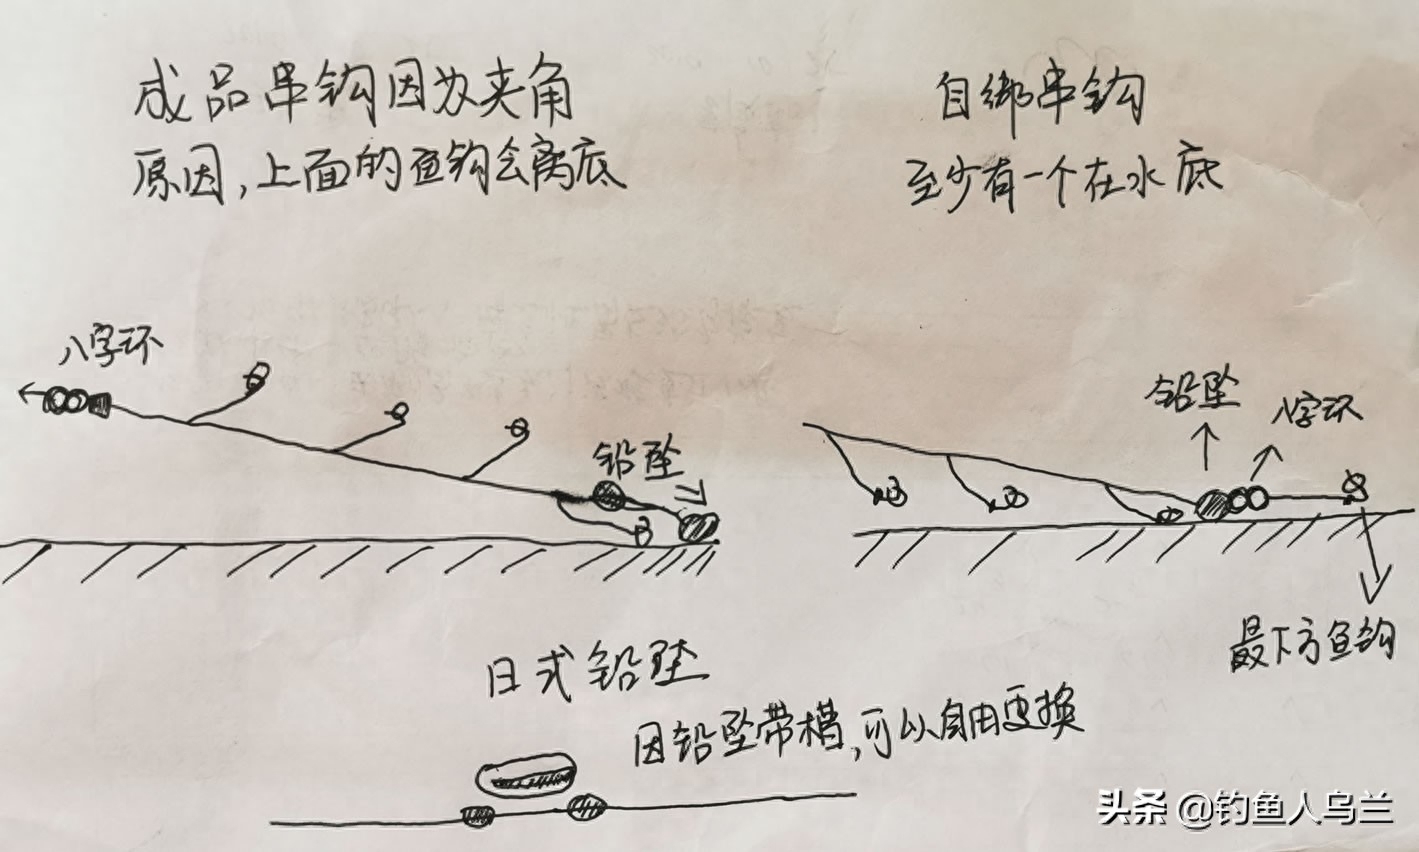 成品串钩因为夹角
原因,上面的鱼钩会离底
自绑串钩
至少有一个在水底
八字环
铅坠
铅坠
八字环
最下方鱼钩
日式铅坠
因铅坠带槽,可以自由更换
头条 @钓鱼人乌兰